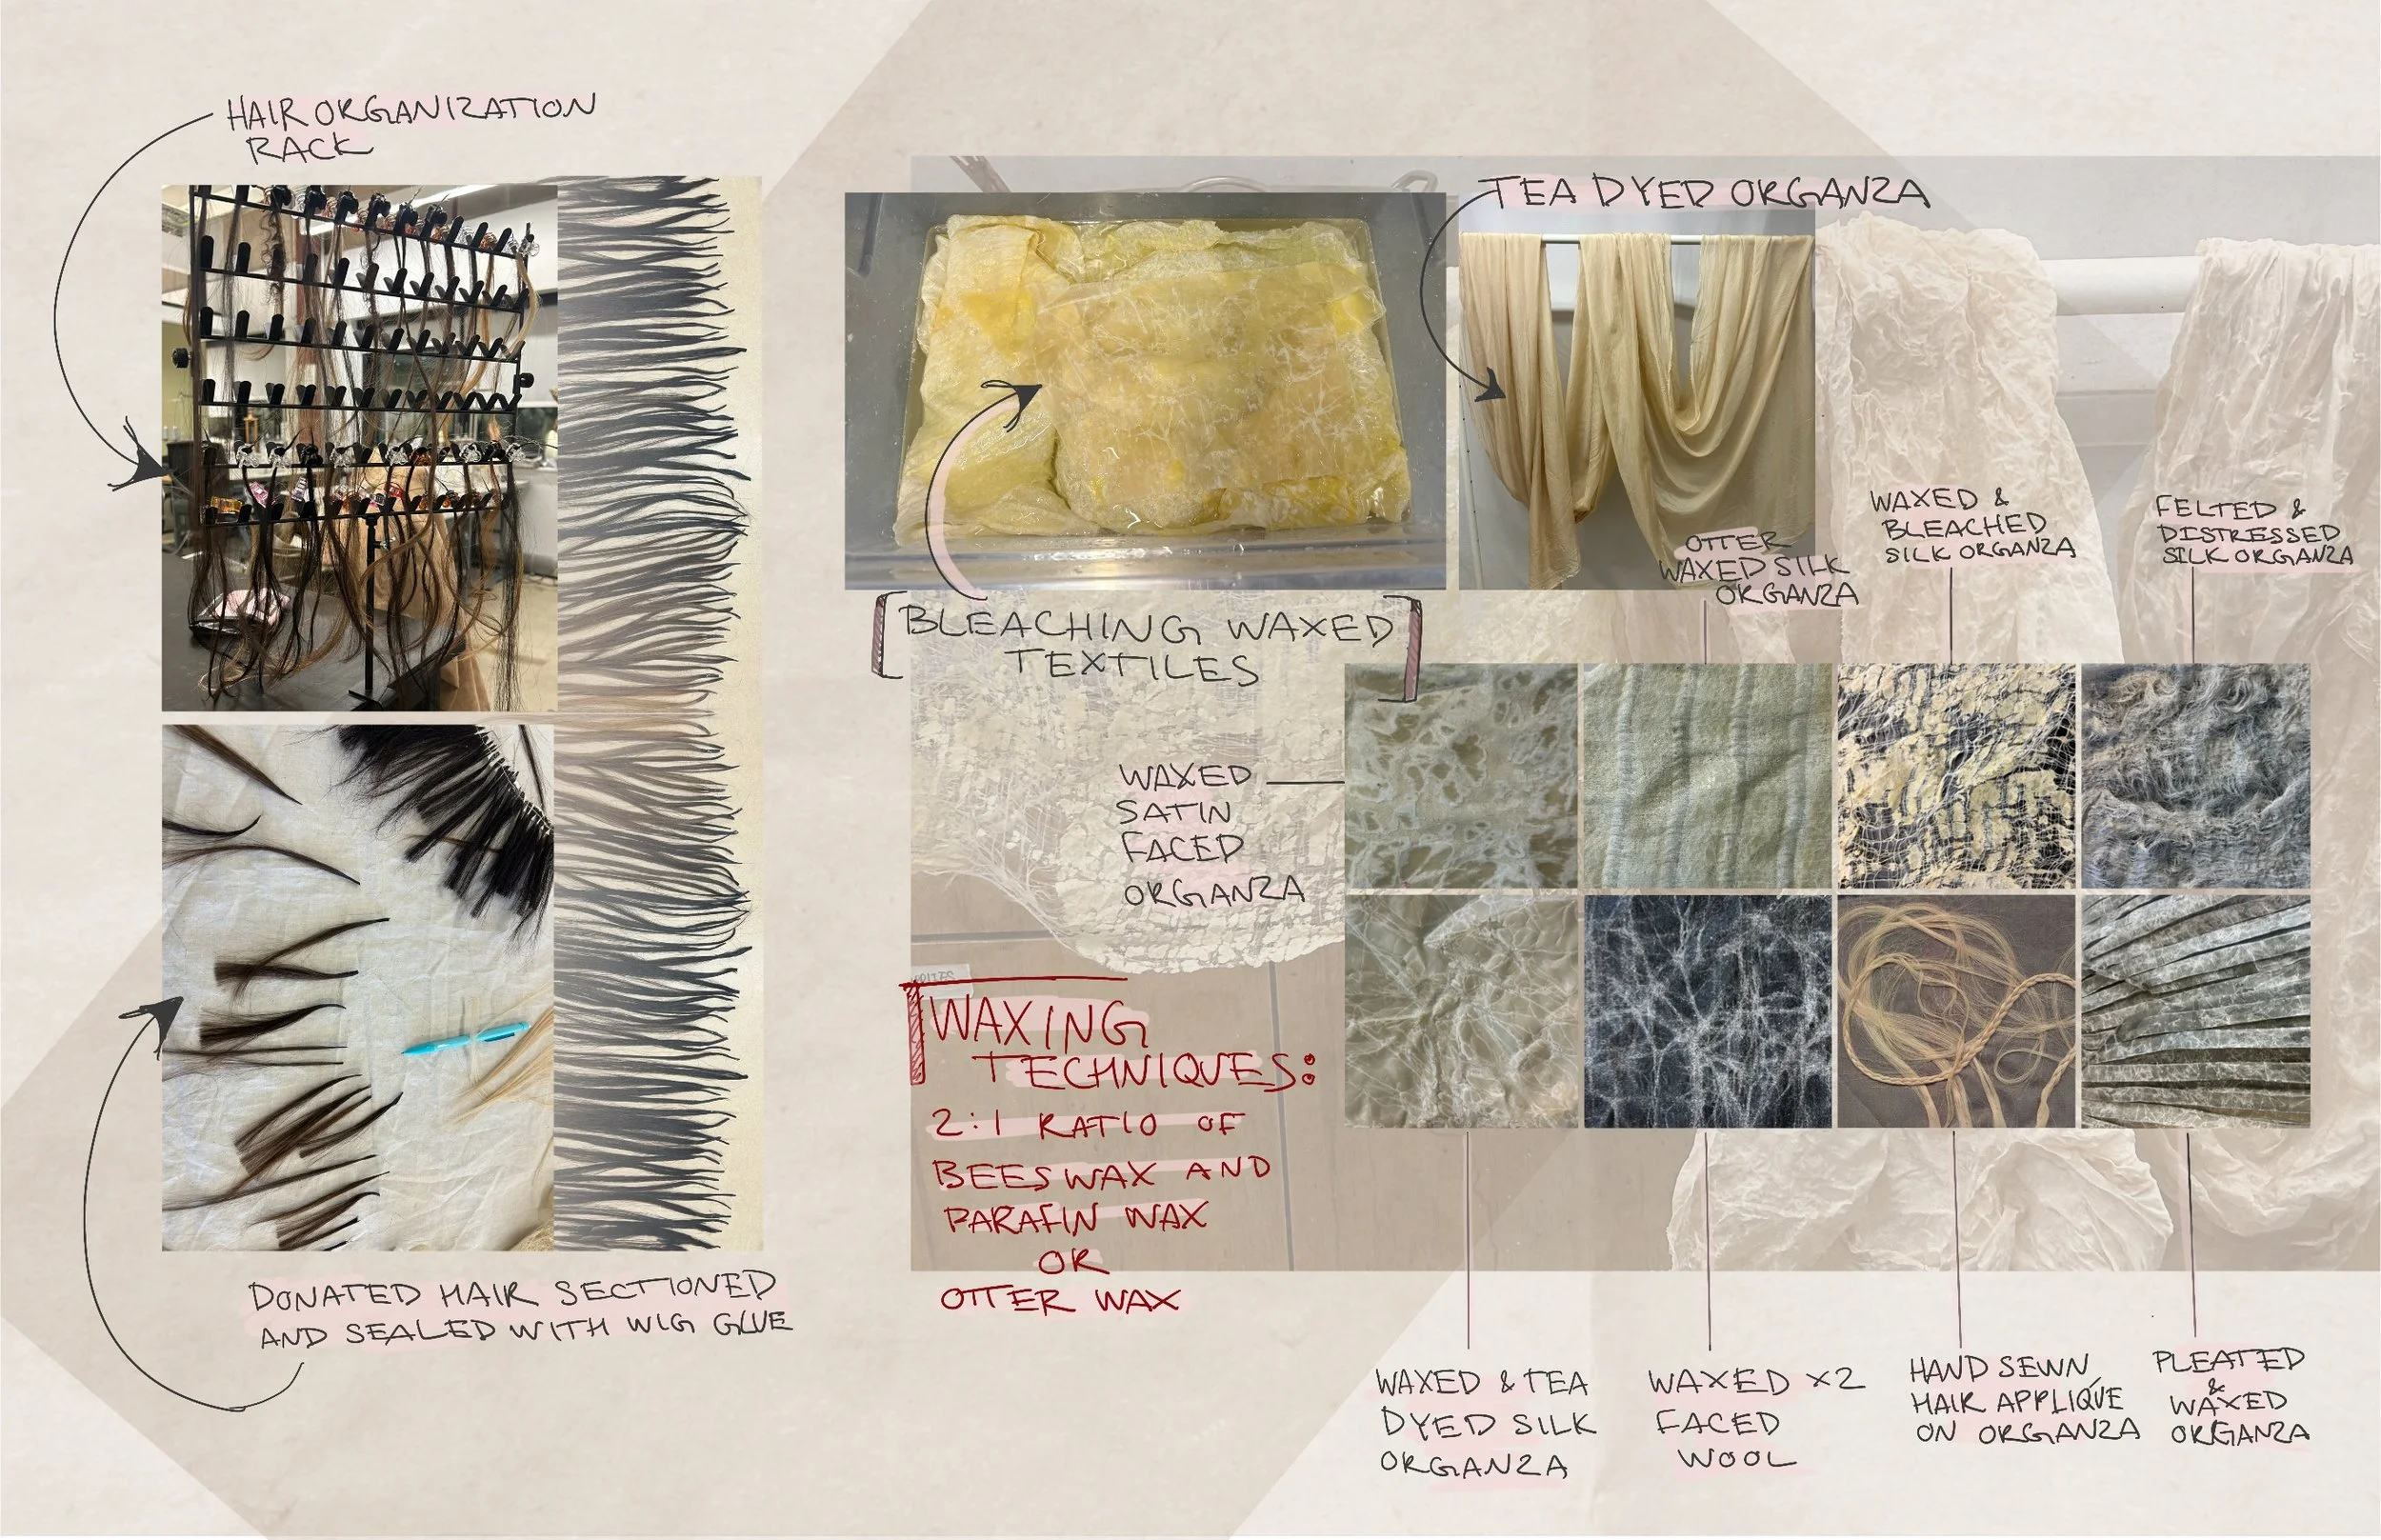 HAIR ORGANIZATION
RACK
TEA DYED ORGANZA
OTTER
WAXED SILK
ORGANZA
WAXED &
BLEACHED
SILK ORGANZA
FELTED &
DISTRESSED
SILK ORGANZA
BLEACHING WAXED
TEXTILES
WAXED
SATIN
FACED
ORGANZA
WAXING
TECHNIQUES:
2:1 RATIO OF
BEESWAX AND
PARAFIN WAX
OR
OTTER WAX
DONATED HAIR SECTIONED
AND SEALED WITH WIG GLUE
WAXED & TEA
DYED SILK
ORGANZA
WAXED X2
FACED
WOOL
HAND SEWN
HAIR APPLIQUÉ
ON ORGANZA
PLEATED
&
WAXED
ORGANZA